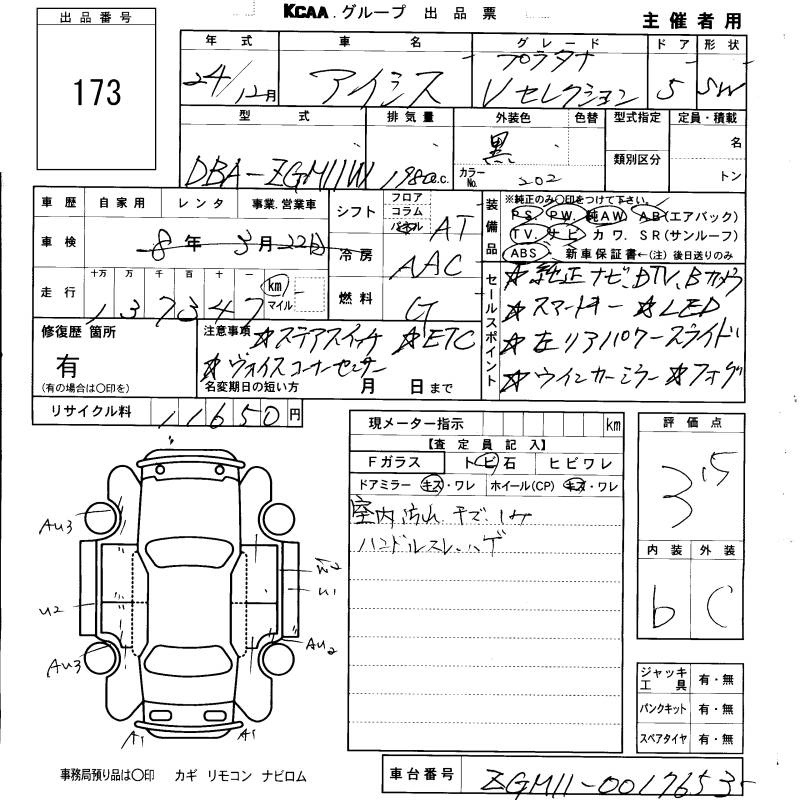 KCAA.グループ 出品票
主催者用
出品番号
173
年式 車名 グレード ドア 形状
24/12月 アイシス プラタナ Vセレクション 5 SW
型式 排気量 外装色 色替 型式指定 定員・積載
名
類別区分
トン
DBA-ZGM11W 1980c.c. 黒 カラーNo. 202
車歴 自家用 レンタ 事業.営業車
車検 8年 3月 22日
走行 十万 万 千 百 十 一
137347 km マイル
シフト フロア コラム パネル AT
冷房 AAC
燃料 G
装備品 ※純正のみ〇印をつけて下さい。
PS. PW. 純AW AB(エアバック)
TV. ナビ カワ. SR(サンルーフ)
ABS 新車保証書←(注) 後日送りのみ
セールスポイント
☆純正ナビ、DTV、Bカメラ
☆スマートキー ☆LED
☆左リアパワースライド
☆ウインカーミラー ☆フォグ
修復歴 箇所
有
(有の場合は〇印を)
注意事項 ☆ステアスイッチ ☆ETC
☆ヴォイスコーナーセンサー
名変期日の短い方 月 日まで
リサイクル料 11650円
現メーター指示 km
【査定員記入】
Fガラス トビ石 ヒビワレ
ドアミラー キズ・ワレ ホイール(CP) キズ・ワレ
室内汚れ キズ シミ
ハンドルスレ、ハゲ
評価点
3.5
内装 外装
b C
AU3
U2
U1
AU3
AU2
A1
A1
ジャッキ工具 有・無
パンクキット 有・無
スペアタイヤ 有・無
事務局預り品は〇印 カギ リモコン ナビロム
車台番号 ZGM11-0017653